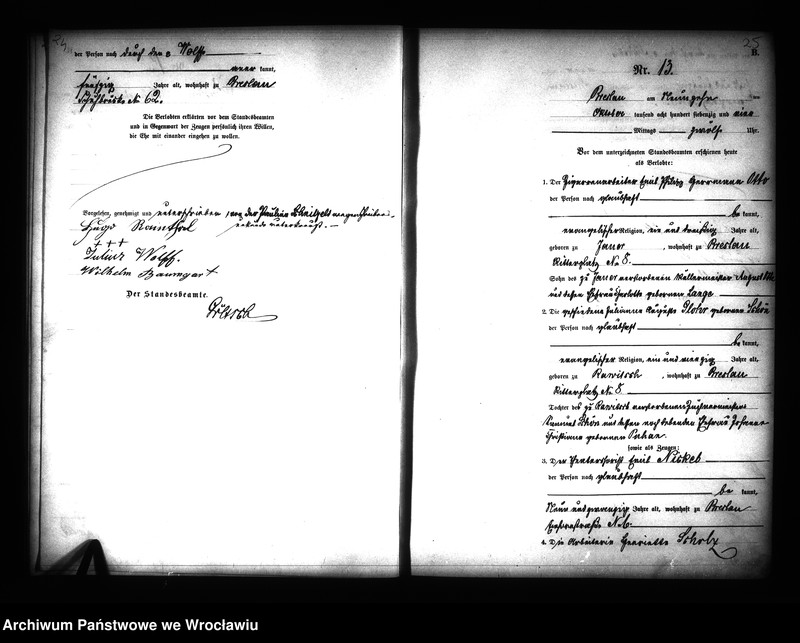 24
der Person nach durch den p Wolff
kannt,
fünfzig Jahre alt, wohnhaft zu Breslau
Schuhbrücke No 62.
Die Verlobten erklärten vor dem Standesbeamten
und in Gegenwart der Zeugen persönlich ihren Willen,
die Ehe mit einander eingehen zu wollen.
Vorgelesen, genehmigt und unterschrieben, von der Pauline
unterkreuzt.
Hugo
+ + +
Julius Wolff.
Wilhelm Baumgart
Der Standesbeamte.
25
B.
Nr. 13.
Breslau am Neunzehn
Oktober tausend acht hundert siebenzig und vier
Mittags zwölf Uhr.
Vor dem unterzeichneten Standesbeamten erschienen heute
als Verlobte:
1. Der Zigarrenarbeiter Emil Herrmann Otto
der Person nach glaubhaft
be kannt,
evangelischer Religion, ein und dreißig Jahre alt,
geboren zu Jauer, wohnhaft zu Breslau
Ritterplatz No 8.
Sohn des zu Jauer verstorbenen August Otto
und dessen Ehefrau Charlotte geborenen Lange
2. Die geschiedene Juliane geborene Schön
der Person nach glaubhaft
be kannt,
evangelischer Religion, ein und vierzig Jahre alt,
geboren zu Rawitsch, wohnhaft zu Breslau
Ritterplatz No 8.
Tochter des zu Rawitsch verstorbenen
Samuel Schön und dessen noch lebenden Ehefrau Johanne
Christiane geborenen
sowie als Zeugen:
3. Der Emil Niskeb
der Person nach glaubhaft
be kannt,
Neun und zwanzig Jahre alt, wohnhaft zu Breslau
No 6.
4. Die Arbeiterin Henriette Scholz
Archiwum Państwowe we Wrocławiu